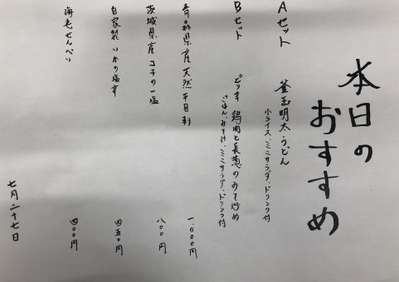 本日の
おすすめ
Aセット 釜玉明太うどん
小ライス、ミニサラダ、ドリンク付
Bセット ピリ辛 鶏肉と長葱のみそ炒め
ごはん、みそ汁、ミニサラダ、ドリンク付
青森県産 天然平目刺 一、〇〇〇円
茨城県産 コチの一塩 八〇〇円
自家製 いかの塩辛 四五〇円
海老せんべい 四〇〇円
七月二十七日